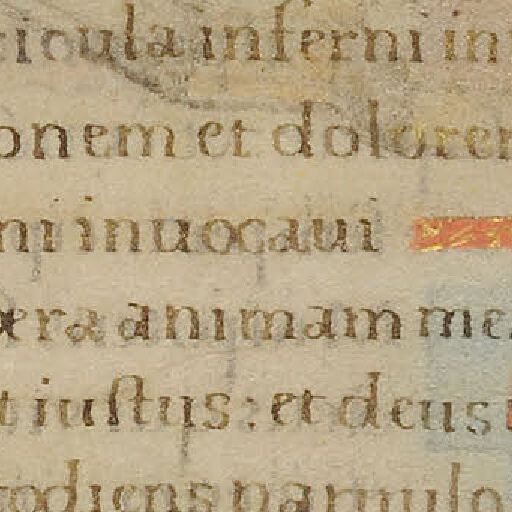 icula inferni in
onem et dolorem
ni inuocaui
era animam me
t iustus: et deus
odiens paruulo